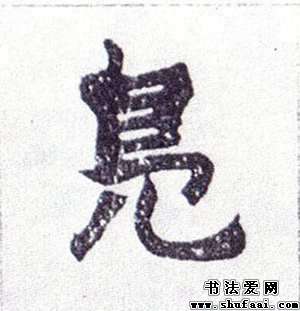 凫
书法爱网
www.shufaai.com